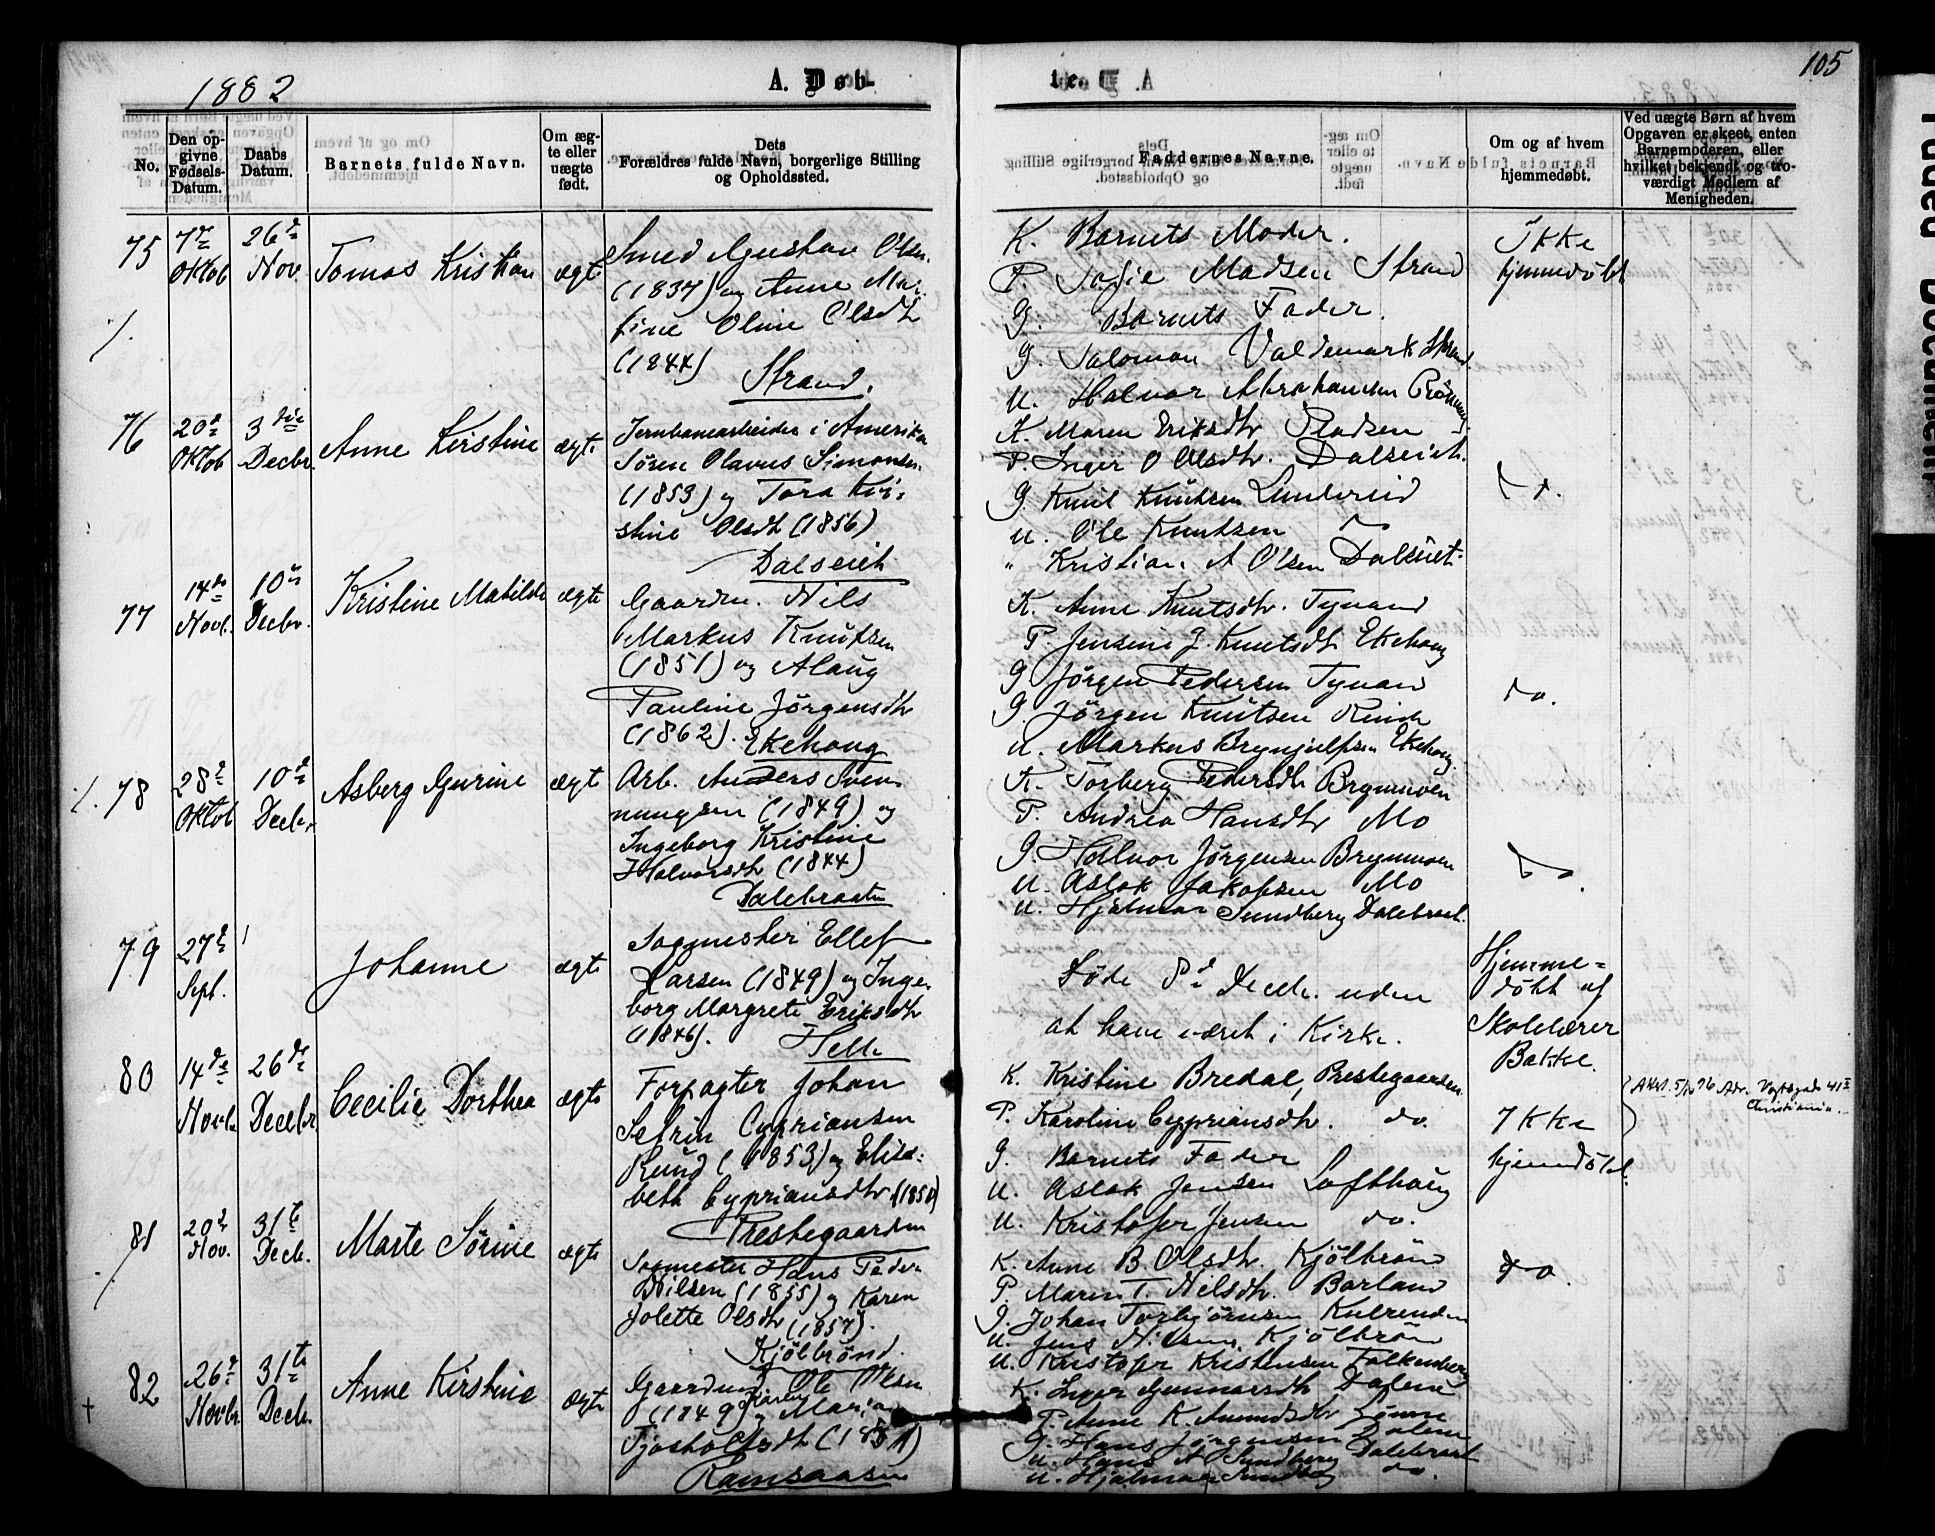 1882
A. Døb-
te.
105
No.
Den op-
givne
Fødsels-
Datum.
Daabs
Datum.
Barnets fulde Navn.
Om æg-
te eller
uægte
født.
Dets
Forældres fulde Navn, borgerlige Stilling
og Opholdssted.
Faddernes Navne.
Om og af hvem
hjemmedøbt.
Ved uægte Børn af hvem
Opgaven er skeet, enten
Barnemoderen, eller
hvilket bekjendt og tro-
værdigt Medlem af
Menigheden.
75
7de
Oktob
26de
Nov.
Tomas Kristian
ægte
Smed Gustav Olsen
(1837) og Anne Mar-
tine Oline Olsdtr
(1844)
Strand.
K. Barnets Moder.
P. Sofie Madsen Strand
G. Barnets Fader.
G. Salomon Valdemark Strand
U. Halvor Abrahamsen Rönning
Ikke
hjemmedöbt
76
20de
Oktob
3die
Decbr.
Anne Kirstine
ægte
Jernbanearbeider i Amerika
Sören Olavus Simonsen
(1853) og Tora Kri-
stine Olsdtr (1856)
Dalseiet
K. Maren Eriksdtr Pladsen
P. Inger O Olsdtr. Dalseiet.
G. Knut Knutsen Lundereid
U. Ole Knutsen
" Kristian A Olsen Dalseiet.
do.
77
14de
Novb.
10de
Decbr.
Kristine Matilde
ægte
Gaardm. Nils
Markus Knutsen
(1851) og Alaug
Pauline Jörgensdtr
(1862). Ekehaug
K. Anne Knutsdtr. Tynand
P. Jensine J. Knutsdtr Ekehaug
G Jörgen Pedersen Tynan
G Jörgen Knutsen
U. Markus Brynjulfsen Ekehaug
do.
78
28de
Oktob
10de
Decbr
Asberg Gurine
ægte
Arb. Anders Sven-
nungsen (1849) og
Ingeborg Kristine
Halvorsdtr (1844)
Dalebraaten
K. Torberg Pedersdtr Brynmoen
P. Andrea Hansdtr Mo
G. Halvor Jörgensen Brynmoen
U. Aslak Jakobsen Mo
U. Hjalmar Sundberg Dalebraat.
do.
79
27de
Sept.
Johanne
ægte
Sagmester Ellef
Larsen (1849) og Inge-
borg Margrete Eriksdtr
(1846).
Helle
Döde 8de Decbr. uden
at have været i Kirke.
Hjemme=
döbt af
Skolelærer
Bakke.
80
14de
Novbr
26de
Decbr
Cecilie Dorthea
ægte
Forpagter Johan
Sefrin Cypriansen
Ruud (1853) og Elisa-
beth Cypriansdtr
Prestegaarden
K. Kristine Bredal, Prestegaarden
P. Karoline Cypriansdtr. do.
G. Barnets Fader
U. Aslak Jensen Lofthaug
U. Kristofer Jensen do.
Ikke
hjemdöbt.
Christiania.
81
20de
Nov.
31te
Decb.
Marte Sörine
ægte
Sagmester Hans Peder
Nilsen (1855) og Karen
Jolette Olsdtr (1857).
Kjölbrönd.
K. Anne B Olsdtr. Kjölbrönd
P Maren T. Nilsdtr. Barland
G. Johan Torbjörnsen
U. Jens Nilsen Kjölbrönd
U. Kristofer Kristensen Falkenberg
do.
82
26de
Novbr
31te
Decbr.
Anne Kirstine
ægte
Gaardm. Ole Olsen
(1849) og Maria
Tjostolfsdtr
Ramsaasen
K. Inger Gunnarsdtr Dalene
P. Anne K. Amundsdtr
G. Hans Jörgensen Dalene
U. Hans A Sundberg Dalebraat
U. Hjalmar Sundberg do.